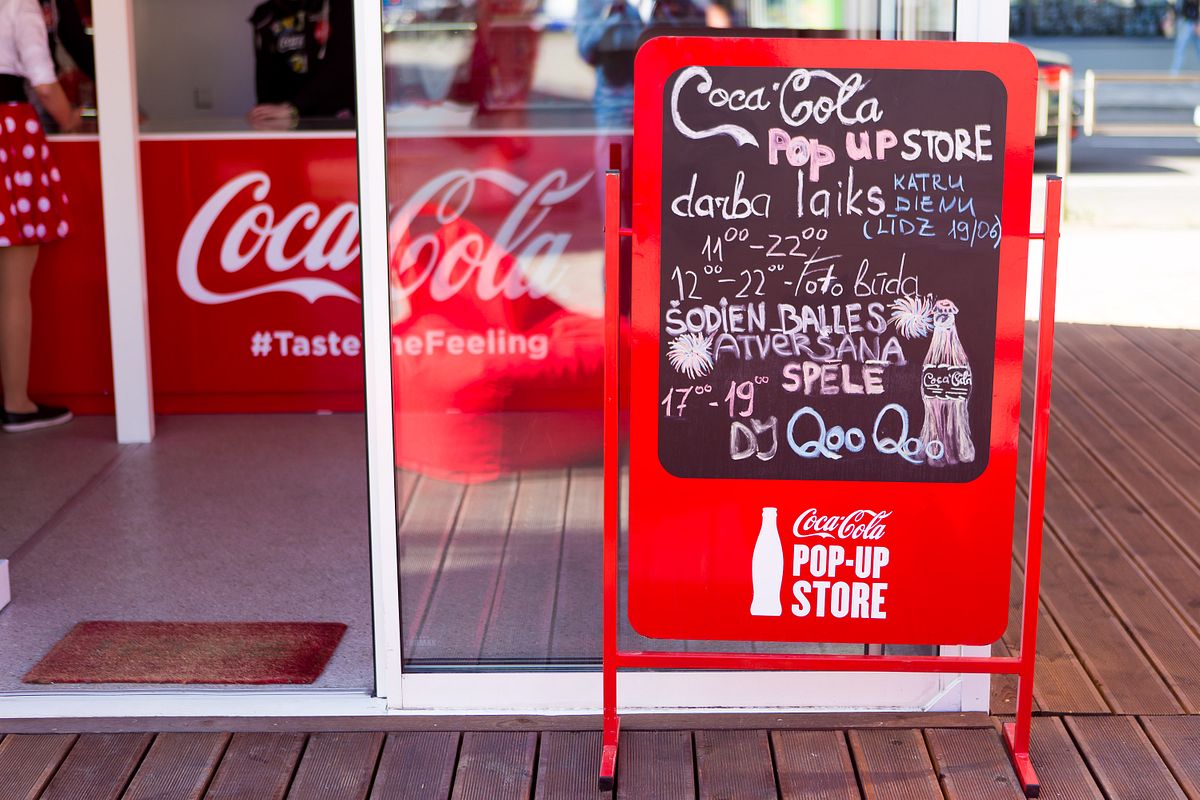 Coca-Cola
#TasteTheFeeling
Coca-Cola
POP UP STORE
darba laiks KATRU
DIENU
(LĪDZ 19/06)
11⁰⁰-22⁰⁰
12⁰⁰-22⁰⁰-foto būda
ŠODIEN BALLES
ATVĒRŠANA
SPĒLĒ
17⁰⁰-19⁰⁰
DJ Qoo Qoo
Coca-Cola
Coca-Cola
POP-UP
STORE